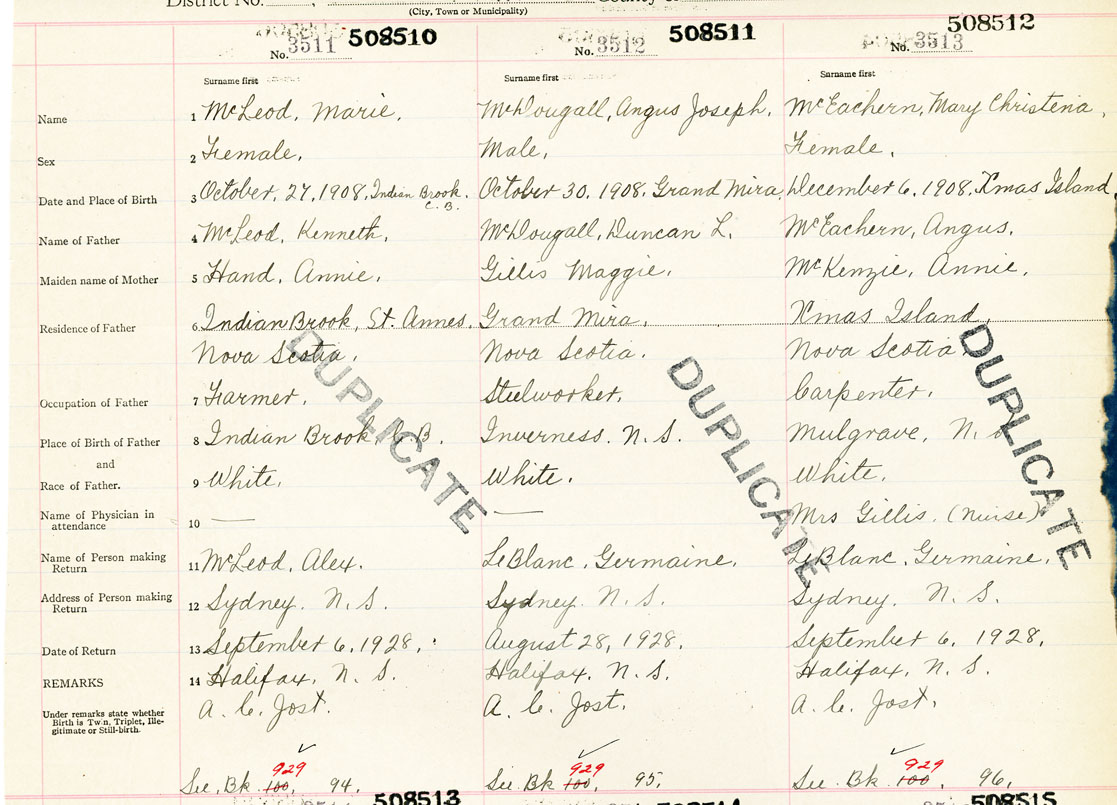 District No. County of
(City, Town or Municipality)
No. 3511 508510 No. 3512 508511 No. 3513 508512
Surname first Surname first Surname first
Name 1 McLeod, Marie. McDougall, Angus Joseph. McEachern, Mary Christena.
Sex 2 Female. Male. Female.
Date and Place of Birth 3 October, 27, 1908, Indian Brook. C. B. October 30, 1908. Grand Mira. December 6, 1908. Xmas Island.
Name of Father 4 McLeod, Kenneth. McDougall, Duncan L. McEachern, Angus.
Maiden name of Mother 5 Hand, Annie. Gillis Maggie. McKenzie, Annie.
Residence of Father 6 Indian Brook, St. Annes. Grand Mira. Xmas Island.
Nova Scotia. Nova Scotia. Nova Scotia
Occupation of Father 7 Farmer. Steelworker. Carpenter.
Place of Birth of Father 8 Indian Brook C. B. Inverness. N. S. Mulgrave, N. S.
and
Race of Father. 9 White. White. White.
Name of Physician in attendance 10 — — Mrs Gillis. (Nurse)
Name of Person making Return 11 McLeod, Alex. LeBlanc, Germaine. LeBlanc, Germaine.
Address of Person making Return 12 Sydney. N. S. Sydney. N. S. Sydney. N. S.
Date of Return 13 September 6, 1928. August 28, 1928. September 6, 1928.
REMARKS 14 Halifax, N. S. Halifax. N. S. Halifax, N. S.
A. C. Jost. A. C. Jost. A. C. Jost.
Under remarks state whether
Birth is Twin, Triplet, Ille-
gitimate or Still-birth.
DUPLICATE DUPLICATE DUPLICATE
929 929 929
See. Bk 100, 94. See. Bk 100, 95. See. Bk 100, 96.
508513 508515